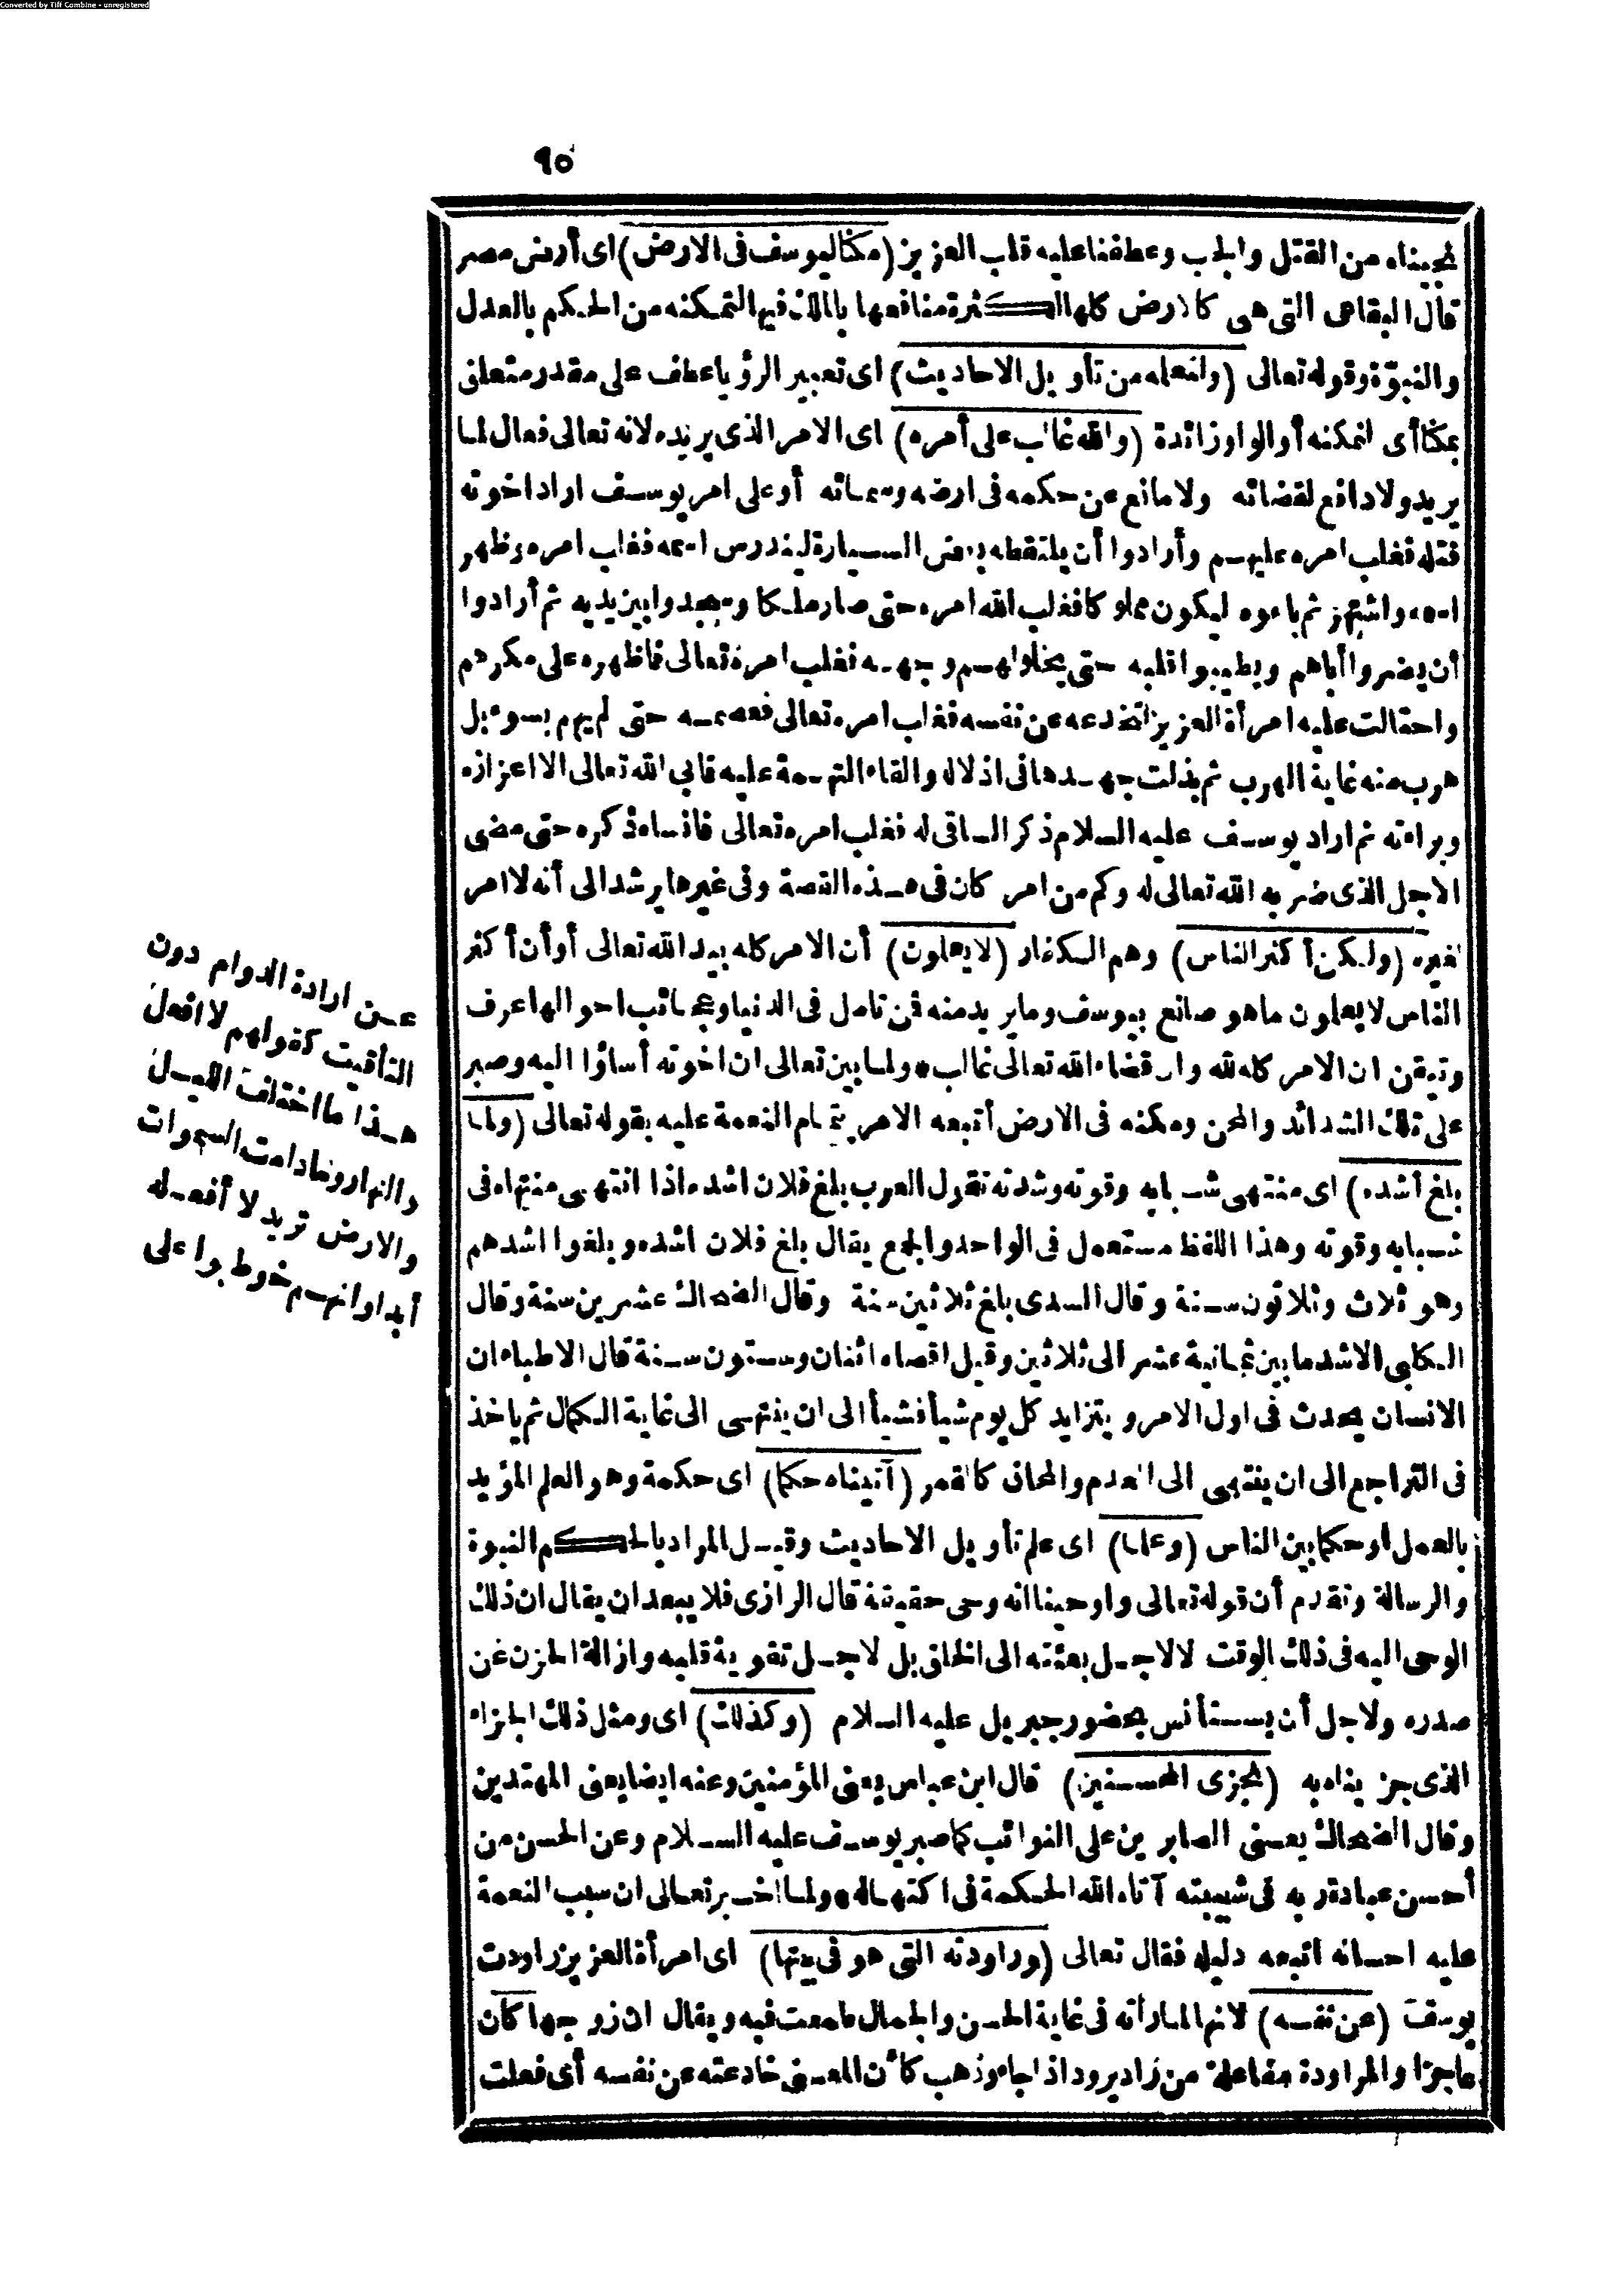 Converted by Tiff Combine - unregistered
٩٥
نجيناه من القتل والجب وعطفنا عليه قلب العزيز (مكنا ليوسف فى الارض) اى أرض مصر
قال البقاعى التى هى كالارض كلها لكثرة منافعها بالملك فيها لتمكنه من الحكم بالعدل
والنبوّة وقوله تعالى (ولنعلمه من تأويل الاحاديث) اى تعبير الرؤيا عطف على مقدر متعلق
بمكنا أى لنمكنه أو الواو زائدة (والله غالب على أمره) اى الامر الذى يريده لانه تعالى فعال لما
يريد ولا دافع لقضائه ولا مانع عن حكمه فى ارضه وسمائه أو على امر يوسف اراد اخوته
قتله فغلب امره عليهم وأرادوا أن يلتقطه بعض السيارة ليندرس اسمه فغلب امره وظهر
اسمه واشتهر ثم باعوه ليكون مملوكا فغلب الله امره حتى صار ملكا وسجدوا بين يديه ثم أرادوا
أن يضروا أباهم ويطيبوا قلبه حتى يخلو لهم وجهه فغلب امره تعالى فاظهره على مكرهم
واحتالت عليه امرأة العزيز لتخدعه عن نفسه فغلب امره تعالى فعصمه حتى لم يهم بسوء بل
هرب منه غاية الهرب ثم بذلت جهدها فى اذلاله والقاء التهمة عليه فابى الله تعالى الا اعزازه
وبراءته ثم اراد يوسف عليه السلام ذكر الساقى له فغلب امره تعالى فانساه ذكره حتى مضى
الاجل الذى ضربه الله تعالى له وكم من امر كان فى هذه القصة وفى غيرها يرشد الى أنه لا امر
لغيره (ولكن أكثر الناس) وهم الكفار (لا يعلمون) أن الامر كله بيد الله تعالى أو أن أكثر
الناس لا يعلمون ما هو صانع بيوسف وما يريد منه فمن تامل فى الدنيا وعجائب احوالها عرف
وتيقن ان الامر كله لله وان قضاء الله تعالى غالب * ولما بين تعالى ان اخوته أساؤا اليه وصبر
على تلك الشدائد والمحن ومكنه فى الارض أتبعه الامر بتمام النعمة عليه بقوله تعالى (ولما
بلغ أشده) اى منتهى شبابه وقوته وشدته تقول العرب بلغ فلان اشده اذا انتهى منتهاه فى
شبابه وقوته وهذا اللفظ مستعمل فى الواحد والجمع يقال بلغ فلان اشده وبلغوا اشدهم
وهو ثلاث وثلاثون سنة وقال السدى بلغ ثلاثين سنة وقال الضحاك عشرين سنة وقال
الكلبى الاشد ما بين ثمانية عشر الى ثلاثين وقيل اقصاه اثنان وستون سنة قال الاطباء ان
الانسان يحدث فى اول الامر ويتزايد كل يوم شيأ فشيأ الى ان ينتهى الى غاية الكمال ثم ياخذ
فى التراجع الى ان ينتهى الى العدم والمحاق كالقمر (آتيناه حكما) اى حكمة وهو العلم المؤيد
بالعمل أو حكما بين الناس (وعلما) اى علم تأويل الاحاديث وقيل المراد بالحكم النبوة
والرسالة وتقدم أن قوله تعالى واوحينا انه وحى حقيقة قال الرازى فلا يبعد ان يقال ان ذلك
الوحى اليه فى ذلك الوقت لا لاجل بعثته الى الخلق بل لاجل تقوية قلبه وازالة الحزن عن
صدره ولاجل أن يستأنس بحضور جبريل عليه السلام (وكذلك) اى ومثل ذلك الجزاء
الذى جزيناه به (نجزى المحسنين) قال ابن عباس يعنى المؤمنين وعنه ايضا يعنى المهتدين
وقال الضحاك يعنى الصابرين على النوائب كما صبر يوسف عليه السلام وعن الحسن من
أحسن عبادة ربه فى شبيبته آتاه الله الحكمة فى اكتهاله * ولما اخبر تعالى ان سبب النعمة
عليه احسانه اتبعه دليله فقال تعالى (وراودته التى هو فى بيتها) اى امرأة العزيز راودت
يوسف (عن نفسه) لانها لما رأته فى غاية الحسن والجمال طمعت فيه ويقال ان زوجها كان
عاجزا والمراودة مفاعلة من راد يرود اذا جاء وذهب كأن المعنى خادعته عن نفسه أى فعلت
عن ارادة الدوام دون
التأقيت كقولهم لا افعل
هذا ما اختلف الليل
والنهار وما دامت السموات
والارض تريد لا أفعله
أبدا وانهم خوطبوا على